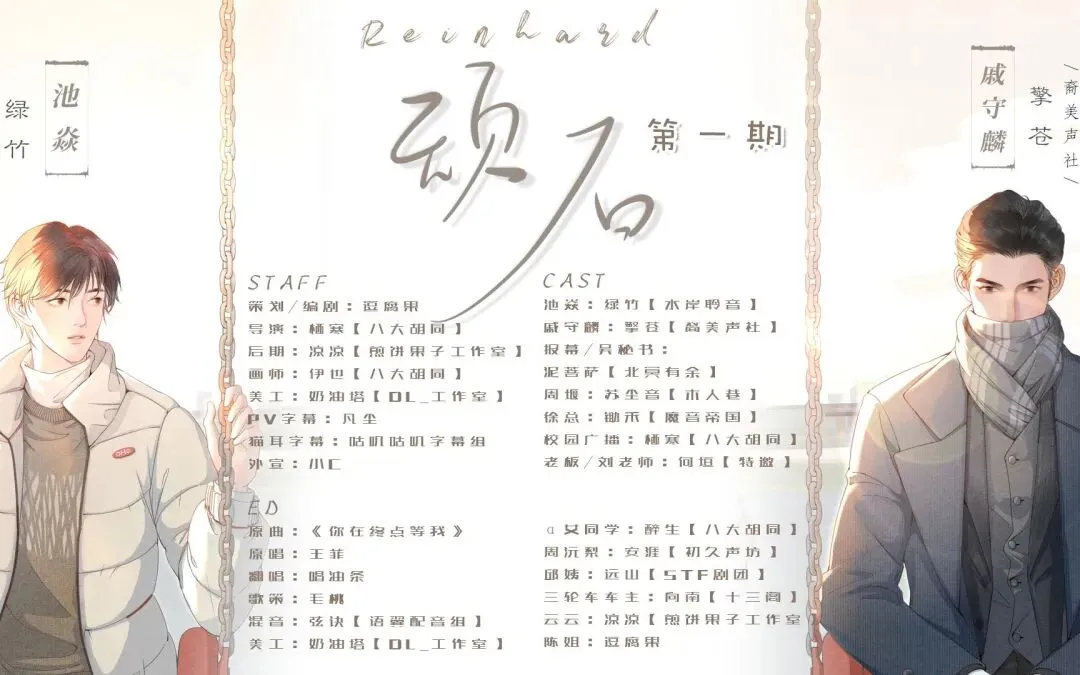 Reinhard
顽石
第一期
池焱
绿竹
戚守麟
擎苍
/裔美声社/
STAFF
策划/编剧：逗腐果
导演：栖寒【八大胡同】
后期：凉凉【煎饼果子工作室】
画师：伊也【八大胡同】
美工：奶油塔【DL_工作室】
PV字幕：凡尘
猫耳字幕：咕叽咕叽字幕组
外宣：小C
CAST
池焱：绿竹【水岸聆音】
戚守麟：擎苍【裔美声社】
报幕/吴秘书：
泥菩萨【北冥有余】
周堰：苏尘音【木人巷】
徐总：锄禾【魔音帝国】
校园广播：栖寒【八大胡同】
老板/刘老师：何垣【特邀】
ED
原曲：《你在终点等我》
原唱：王菲
翻唱：唱油条
歌策：毛桃
混音：弦诀【语翼配音组】
美工：奶油塔【DL_工作室】
α女同学：醉生【八大胡同】
周沅梨：安涯【初久声坊】
邱姨：远山【STF剧团】
三轮车车主：向南【十三阁】
云云：凉凉【煎饼果子工作室】
陈姐：逗腐果